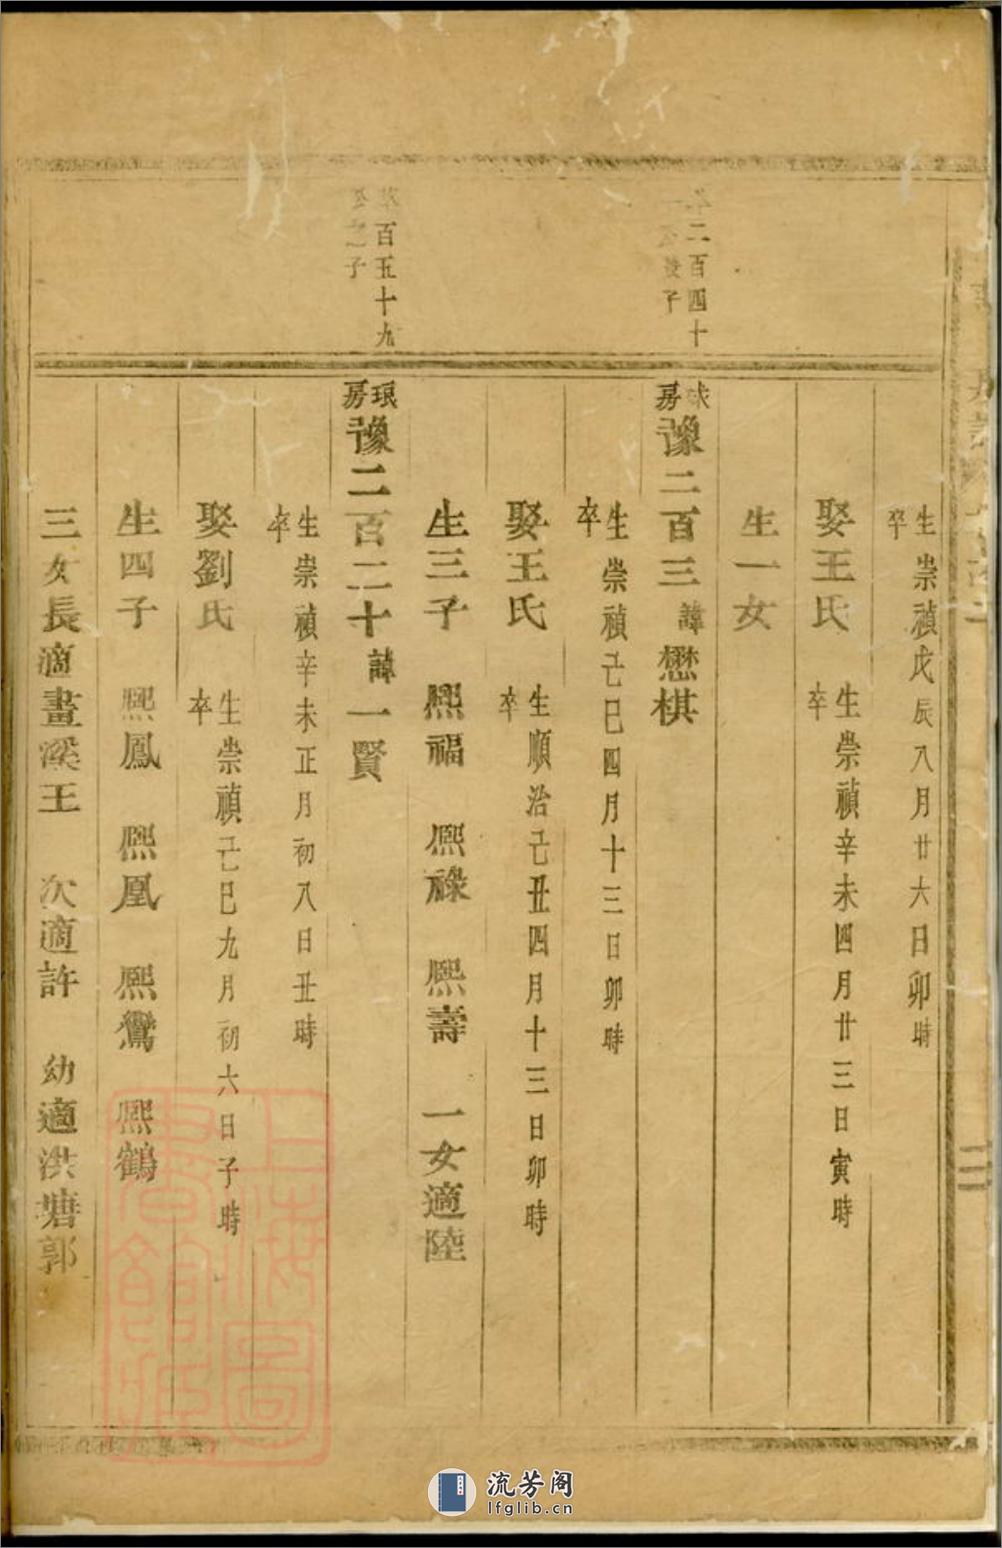 生崇禎戊辰八月廿六日卯時
卒
娶王氏
生崇禎辛未四月廿三日寅時
卒
生一女
二百四十
子
房
豫二百三諱懋棋
生崇禎己巳四月十三日卯時
卒
娶王氏
生順治己丑四月十三日卯時
卒
生三子 熙福 熙祿 熙壽 一女適陸
百五十九
之子
琅房
豫二百二十諱一賢
生崇禎辛未正月初八日丑時
卒
娶劉氏
生崇禎己巳九月初六日子時
卒
生四子 熙鳳 熙凰 熙鸞 熙鶴
三女長適畫溪王 次適許 幼適洪塘郭
上海圖書館藏
流芳阁
lfglib.cn